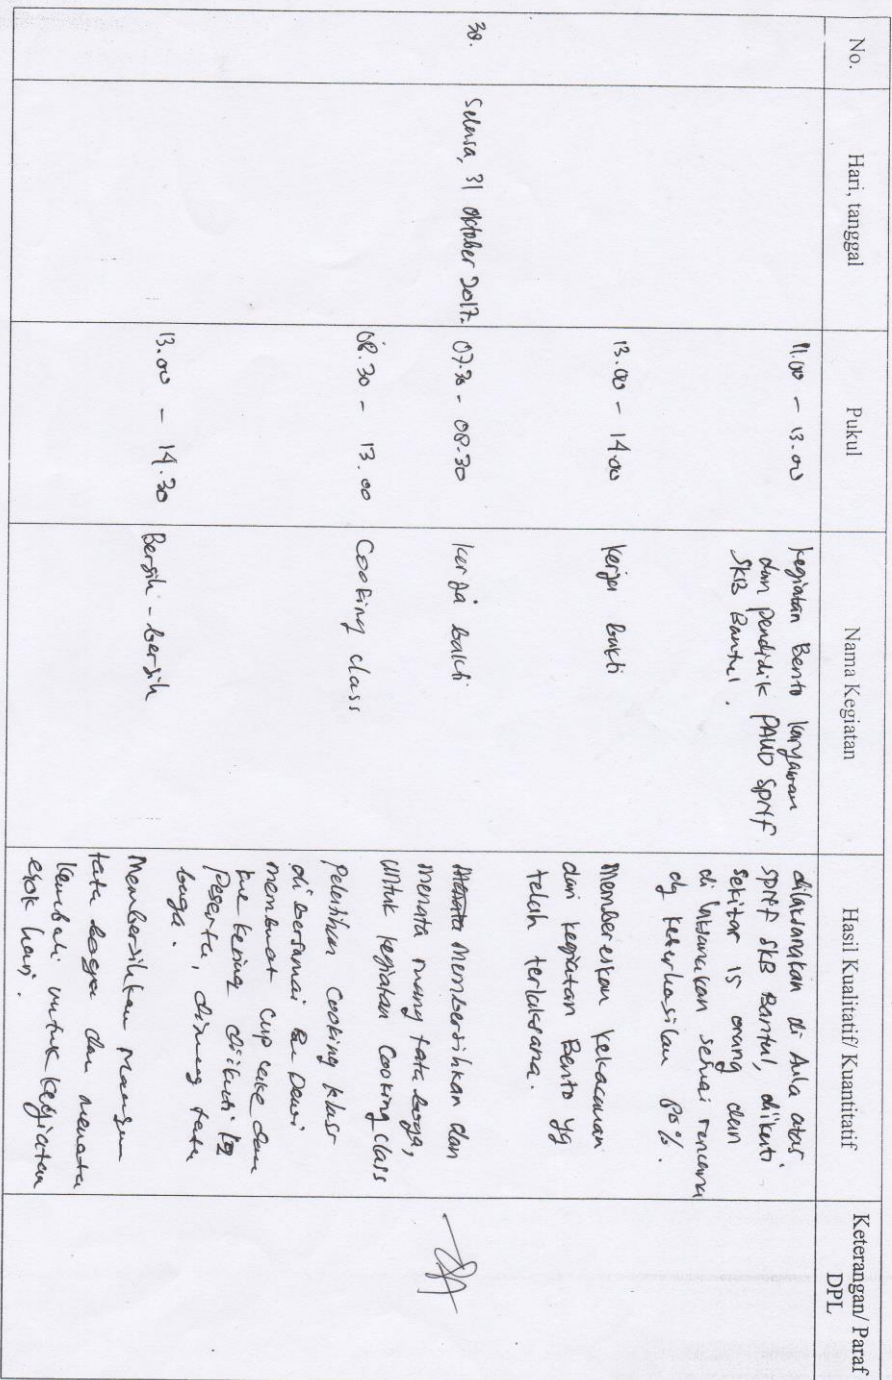 No.
Hari, tanggal
Pukul
Nama Kegiatan
Hasil Kualitatif/ Kuantitatif
Keterangan/ Paraf
DPL
11.00 - 13.00
kegiatan Bento karyawan
dan pendidik PAUD SPNF
SKB Bantul.
dilaksanakan di Aula atas
SPNF SKB Bantul, diikuti
sekitar 15 orang dan
di laksanakan sesuai rencana
dg keberhasilan 80%.
13.00 - 14.00
Kerja bakti
Membereskan kekacauan
dari kegiatan Bento yg
telah terlaksana.
30.
Selasa, 31 Oktober 2017.
07.30 - 08.30
Kerja bakti
Membersihkan dan
menata ruang tata boga,
untuk kegiatan Cooking Class
08.30 - 13.00
Cooking class
Pelatihan Cooking klas
di bersamai Bu Dewi
membuat cup cake dan
kue kering diikuti 12
peserta, diruang tata
boga.
13.00 - 14.30
Bersih - bersih
Membersihkan
tata boga dan menata
kembali untuk kegiatan
esok hari.